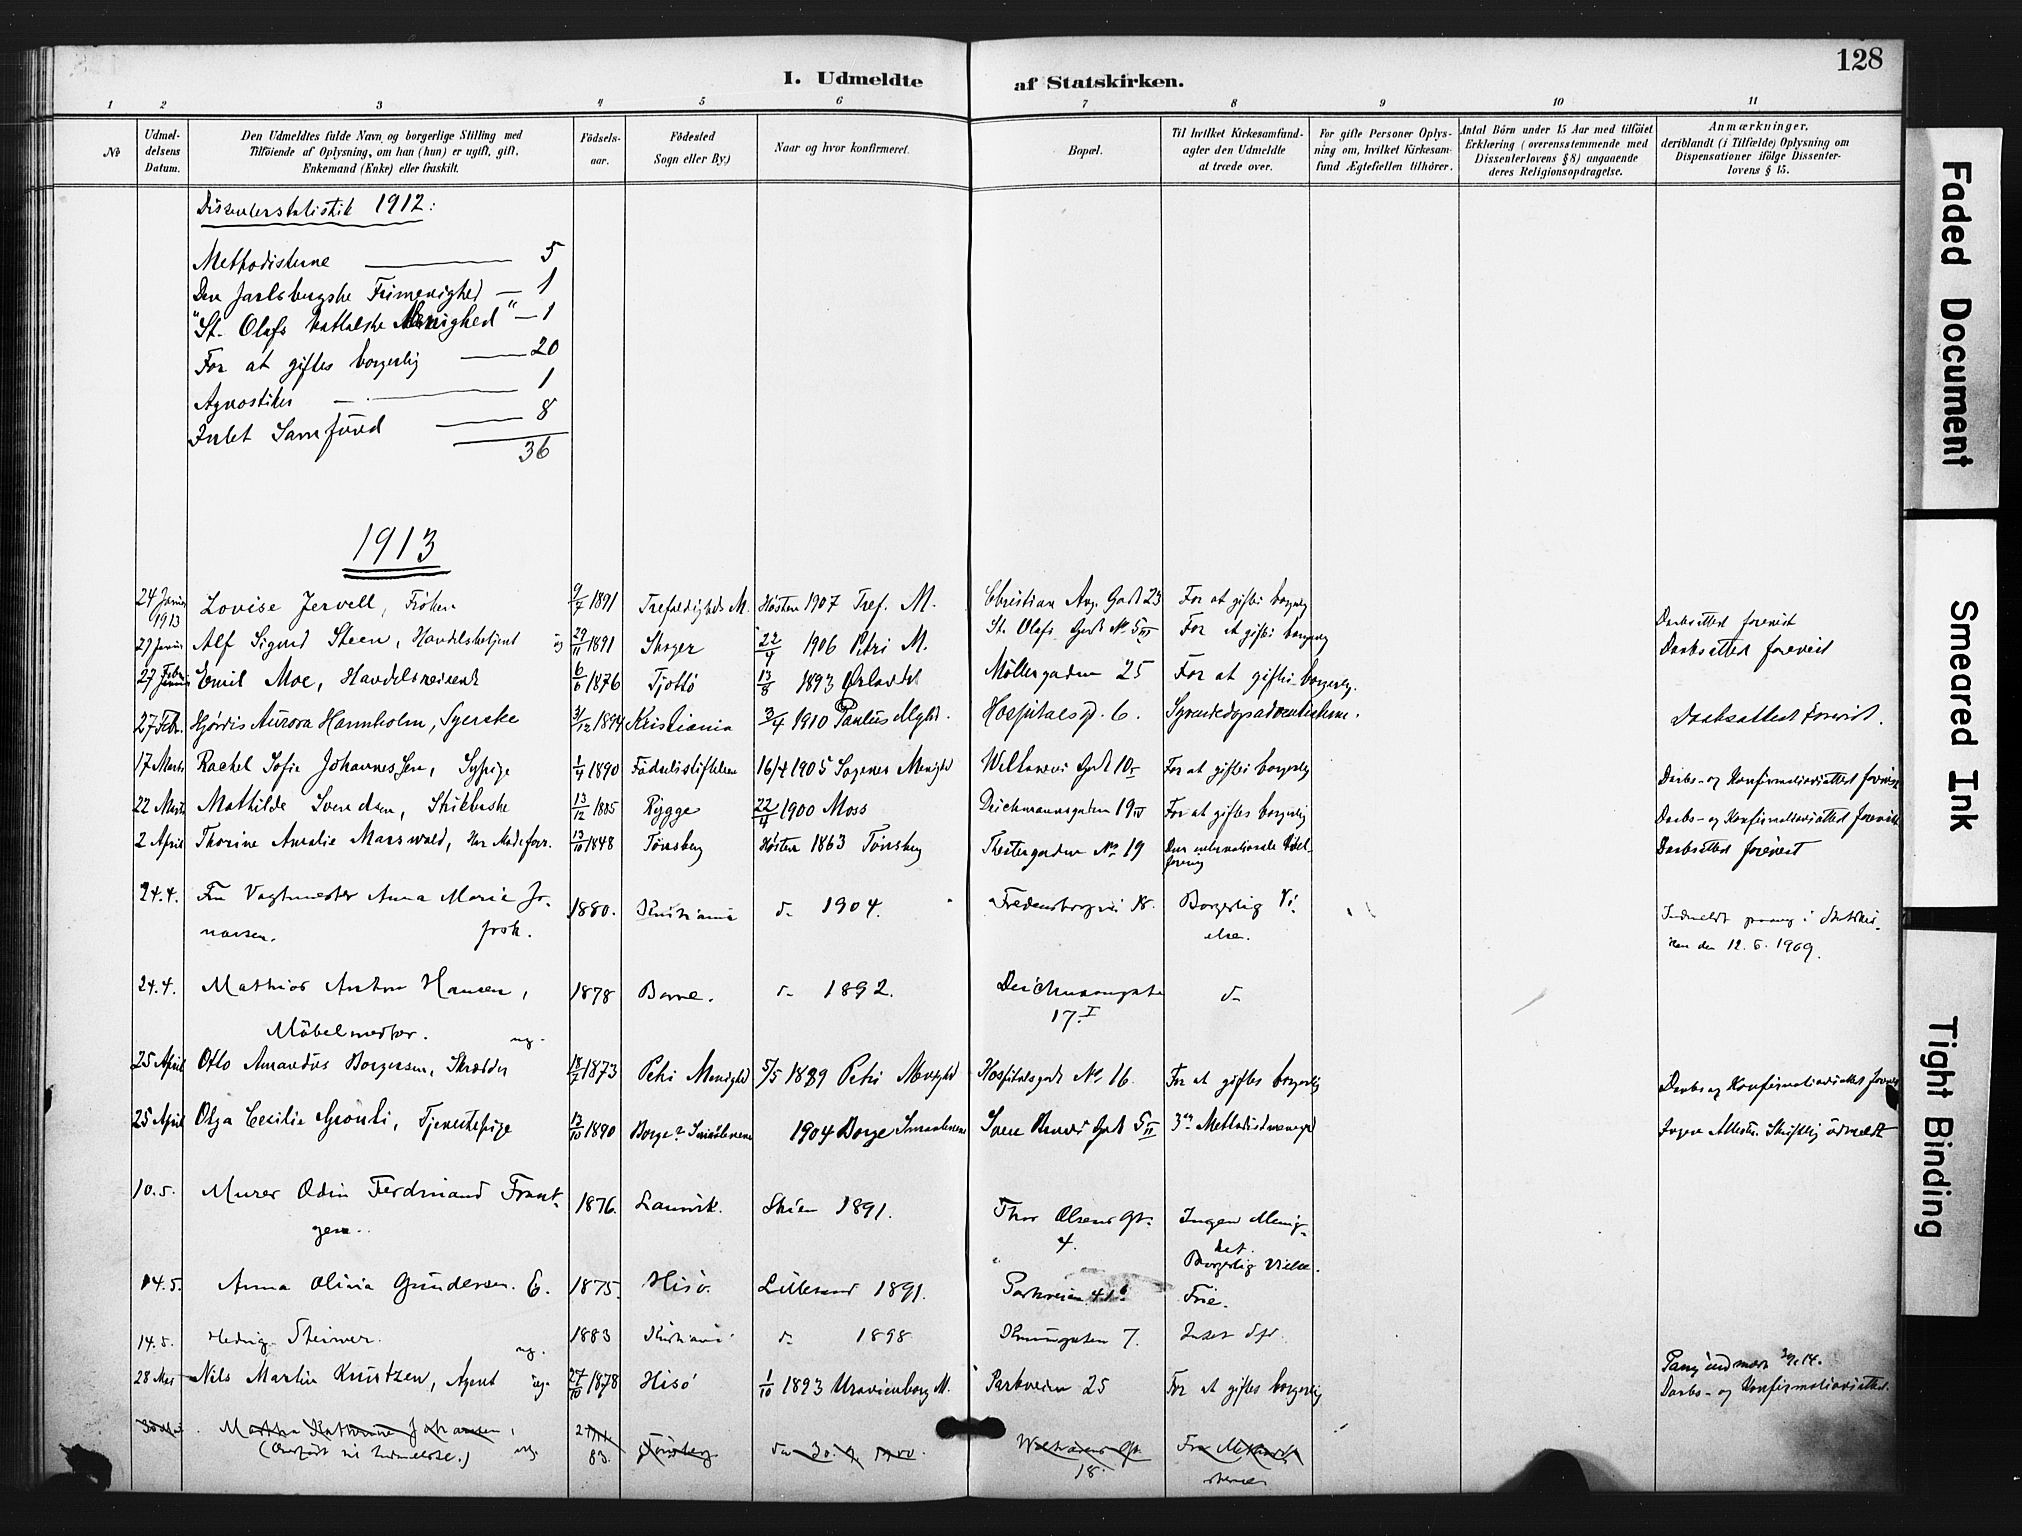 128
I. Udmeldte af Statskirken.
1 2 3 4 5 6 7 8 9 10 11
No
Udmel-
delsens
Datum.
Den Udmeldtes fulde Navn og borgerlige Stilling med
Tilföiende af Oplysning, om han (hun) er ugift, gift,
Enkemand (Enke) eller fraskilt.
Födsels-
aar.
Födested
Sogn eller By)
Naar og hvor konfirmeret.
Bopæl.
Til hvilket Kirkesamfund-
agter den Udmeldte
at træde over.
For gifte Personer Oplys-
ning om, hvilket Kirkesam-
fund Ægtefællen tilhörer.
Antal Börn under 15 Aar med tilföiet
Erklæring (overensstemmende med
Dissenterlovens § 8) angaaende
deres Religionsopdragelse.
Anmærkninger,
deriblandt (i Tilfælde) Oplysning om
Dispensationer ifölge Dissenter-
lovens § 15.
Dissenterstatistik 1912:
Methodisterne 5
Den Jarlsbergske Frimenighed 1
"St. Olafs katholske Menighed" 1
For at giftes borgerlig 20
Agnostiker 1
Intet Samfund 8
36
1913
24 Januar 1913 Lovise Jervell, Frøken 9/7 1891 Trefoldigheds M. Høsten 1907 Tref. M. Christian Aug. Gade 23 For at giftes borgerlig Daabsattest forevist
27 Januar Alf Sigurd Steen, Handelsbetjent ug 29/11 1891 Skoger 22/4 1906 Petri M. St. Olafs Gade No 5 III For at giftes borgerlig Daabsattest forevist
27 Febr. Emil Moe, Handelsreisende 6/6 1876 Tjøttö 13/8 1893 For at giftes borgerlig. Möllergaden 25
27 Febr. Hjördis Aurora Harmholm, Syerske 31/12 1894 Kristiania 3/4 1910 Paulus Mghd. Hospitalsg. 6. Syvendedagsadventisterne. Daabsattest forevist.
17 Marts Rachel Sofie Johannessen, Sypige 1/4 1890 Födselsstiftelsen 16/4 1905 Sagenes Menighd For at giftes borgerlig Daabs- og Konfirmationsattest forevist
22 Marts Mathilde Svendsen, Strikkerske 13/12 1885 Rygge 22/4 1900 Moss Deichmannsgaden 19 IV For at giftes borgerlig Daabs- og Konfirmationsattest forevist
2 April Thorine Amalie Marswald, 13/10 1848 Tönsberg Høsten 1863 Tönsberg Thestergaden No 19 Daabsattest forevist
24.4. Fru Vagtmester Anna Marie Jo-
nassen. frsk. 1880. Kristiania do 1904. Fredensborgvei 18. Borgerlig Vi-
else.
Indmeldt i Statskir-
ken den 12.6.1909
24.4. Mathias Anton Hansen, 1878 Borre. do 1892. Deichmansgate 17. I do
Möbelmester. ug.
25 April Otto Amandus Borgersen, Skrædder 18/7 1873 Petri Menighd 5/5 1889 Petri Menighd Hospitalsgade No 16. For at giftes borgerlig Daabs og Konfirmationsattest forevist
25 April Olga Cecilie Grönli, Tjenestepige 13/10 1890 Borge Smaalenene 1904 Borge Smaalenene 5 II 3die Methodistmenighd Ingen Attester. Skriftlig udmeldt
10.5. Murer Odin Ferdinand Frant-
zen. 1876. Laurvik. Skien 1891. Thor Olsens Gt. 4. Ingen Menig-
het.
Borgerlig Vielse.
14.5. Anna Olivia Gundersen. G. 1875. Hisö. Lillesand 1891. Parkveien 41 b Frie.
14.5. Hedvig Steiner. ug. 1883 Kristiania do 1898 7. Intet Sfd.
28 Mai Nils Martin Knutzen, Agent ug. 27/10 1878 Hisö 1/10 1893 Uranienborg M. Parkveien 25 For at giftes borgerlig Daabs- og Konfirmationsattest
Martha Katharine Johansen,
(Overført til Indmeldte.) ug. 83. Tönsberg 18.
Faded Document
Smeared Ink
Tight Binding